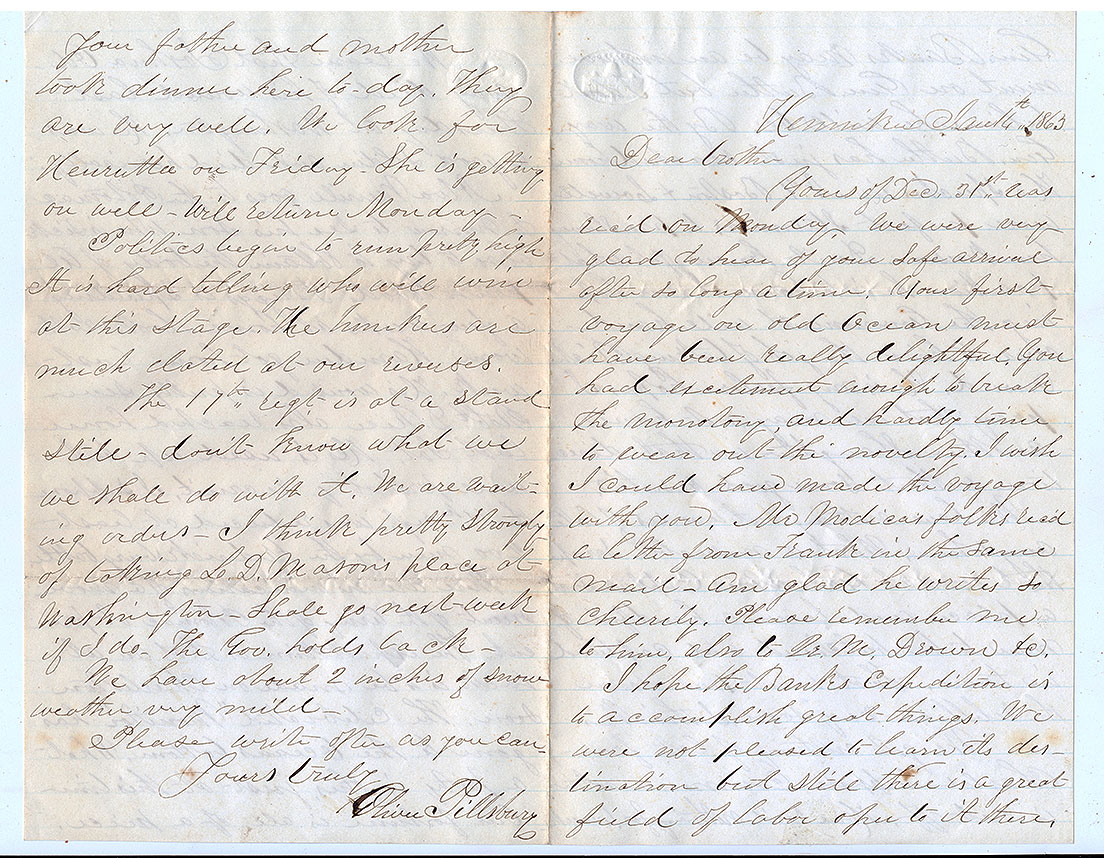 Henniker Jan 4th, 1863
Dear brother
Yours of Dec. 31st was
rec'd on Monday. We were very
glad to hear of your safe arrival
after so long a time. Your first
voyage on old Ocean must
have been really delightful. You
had excitement enough to break
the monotony, and hardly time
to wear out the novelty. I wish
I could have made the voyage
with you. Mr Modica's folks rec'd
a letter from Frank in the same
mail - am glad he writes so
cheerily. Please remember me
to him, also to Lr. M. Drown &c.
I hope the Banks Expedition is
to accomplish great things. We
were not pleased to learn its des-
tination but still there is a great
field of labor open to it there.
Your father and mother
took dinner here to-day. They
are very well. We look for
Henrietta on Friday - She is getting
on well - Will return Monday -
Politics begin to run pretty high
It is hard telling who will win
at this stage. The hunkers are
much elated at our reverses.
The 17th regt. is at a stand
still - don't know what we
we shall do with it. We are wait-
ing orders - I think pretty strongly
of taking L. D. Mason's place at
Washington - Shall go next week
if I do - The Gov. holds back -
We have about 2 inches of snow
weather very mild -
Please write often as you can -
Yours truly
Oliver Pillsbury